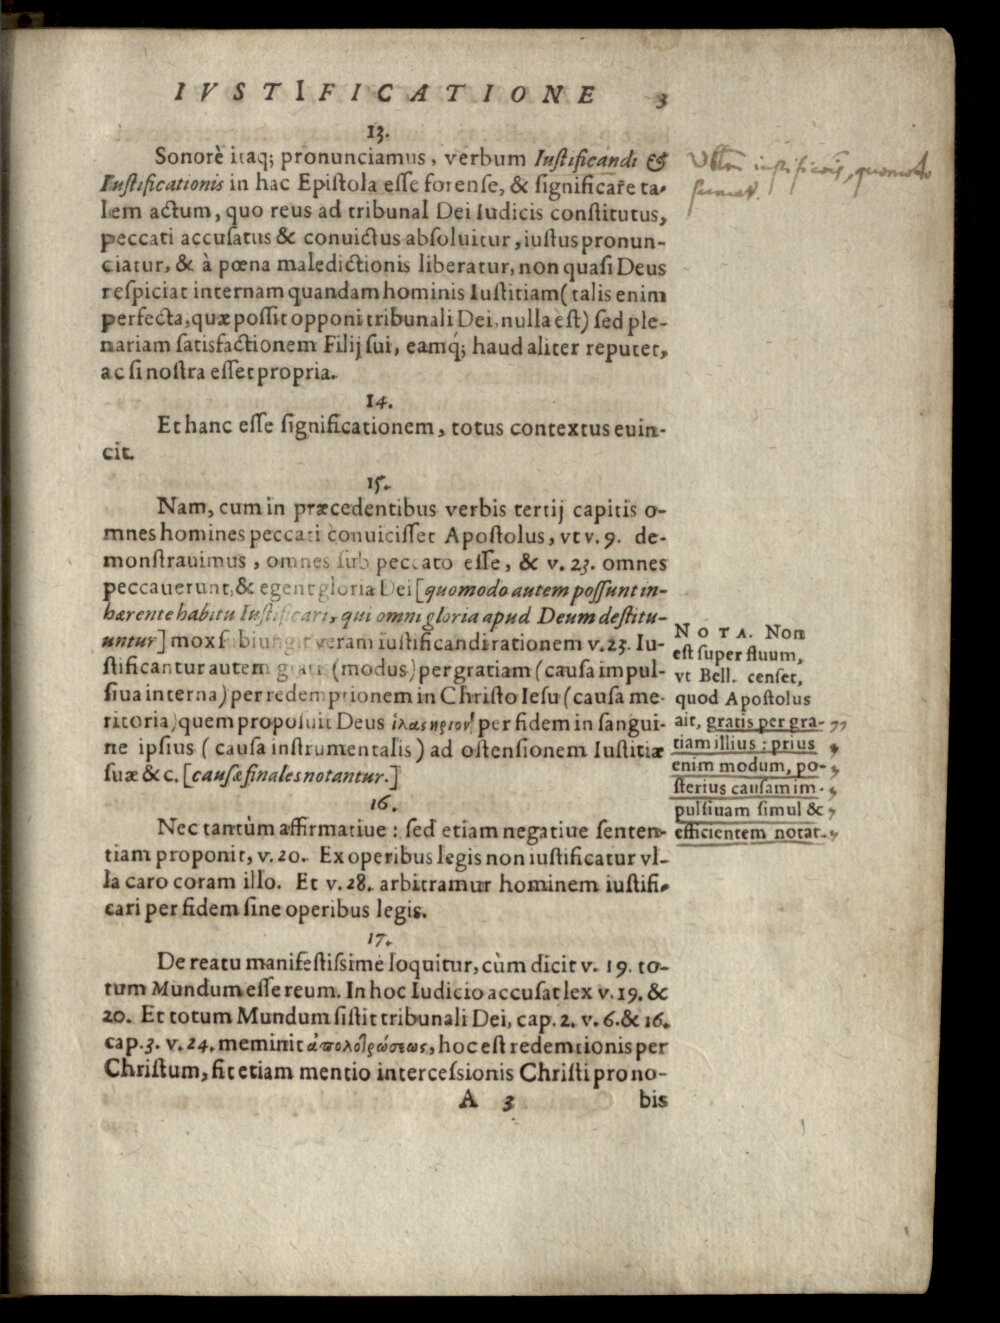 IVSTIFICATIONE 3
13.
Sonorè itaq; pronunciamus, verbum Iuſtificandi &
Iuſtificationis in hac Epiſtola eſſe forenſe, & ſignificare ta-
lem actum, quo reus ad tribunal Dei Iudicis conſtitutus,
peccati accuſatus & conuictus abſoluitur, iuſtus pronun-
ciatur, & à pœna maledictionis liberatur, non quaſi Deus
reſpiciat internam quandam hominis Iuſtitiam (talis enim
perfecta, quæ poſſit opponi tribunali Dei, nulla eſt) ſed ple-
nariam ſatisfactionem Filij ſui, eamq; haud aliter reputet,
ac ſi noſtra eſſet propria.
14.
Et hanc eſſe ſignificationem, totus contextus euin-
cit.
15.
Nam, cum in præcedentibus verbis tertij capitis o-
mnes homines peccati conuiciſſet Apoſtolus, vt v. 9. de-
monſtrauimus, omnes ſub peccato eſſe, & v. 23. omnes
peccauerunt, & egent gloria Dei [quomodo autem poſſunt in-
hærente habitu Iuſtificari, qui omni gloria apud Deum deſtitu-
untur] mox ſubiungit veram iuſtificandi rationem v. 23. Iu-
ſtificantur autem gratis (modus) per gratiam (cauſa impul-
ſiua interna) per redemptionem in Chriſto Ieſu (cauſa me-
ritoria) quem propoſuit Deus ἱλαςηριον per fidem in ſangui-
ne ipſius (cauſa inſtrumentalis) ad oſtenſionem Iuſtitiæ
ſuæ & c. [cauſæ finales notantur.]
16.
Nec tantùm affirmatiue: ſed etiam negatiue ſenten-
tiam proponit, v. 20. Ex operibus legis non iuſtificatur vl-
la caro coram illo. Et v. 28. arbitramur hominem iuſtifi-
cari per fidem ſine operibus legis.
17.
De reatu manifeſtiſſimè loquitur, cùm dicit v. 19. to-
tum Mundum eſſe reum. In hoc Iudicio accuſat lex v. 19. &
20. Et totum Mundum ſiſtit tribunali Dei, cap. 2. v. 6. & 16.
cap. 3. v. 24. meminit ἀπολυτρώσεως, hoc est redemtionis per
Chriſtum, fit etiam mentio interceſsionis Chriſti pro no-
A 3 bis
iustificandi, quomodo
NOTA. Non
eſt ſuperfluum,
vt Bell. cenſet,
quod Apoſtolus
ait, gratis per gra-
tiam illius: prius
enim modum, po-
ſterius cauſam im-
pulſiuam ſimul &
efficientem notat.